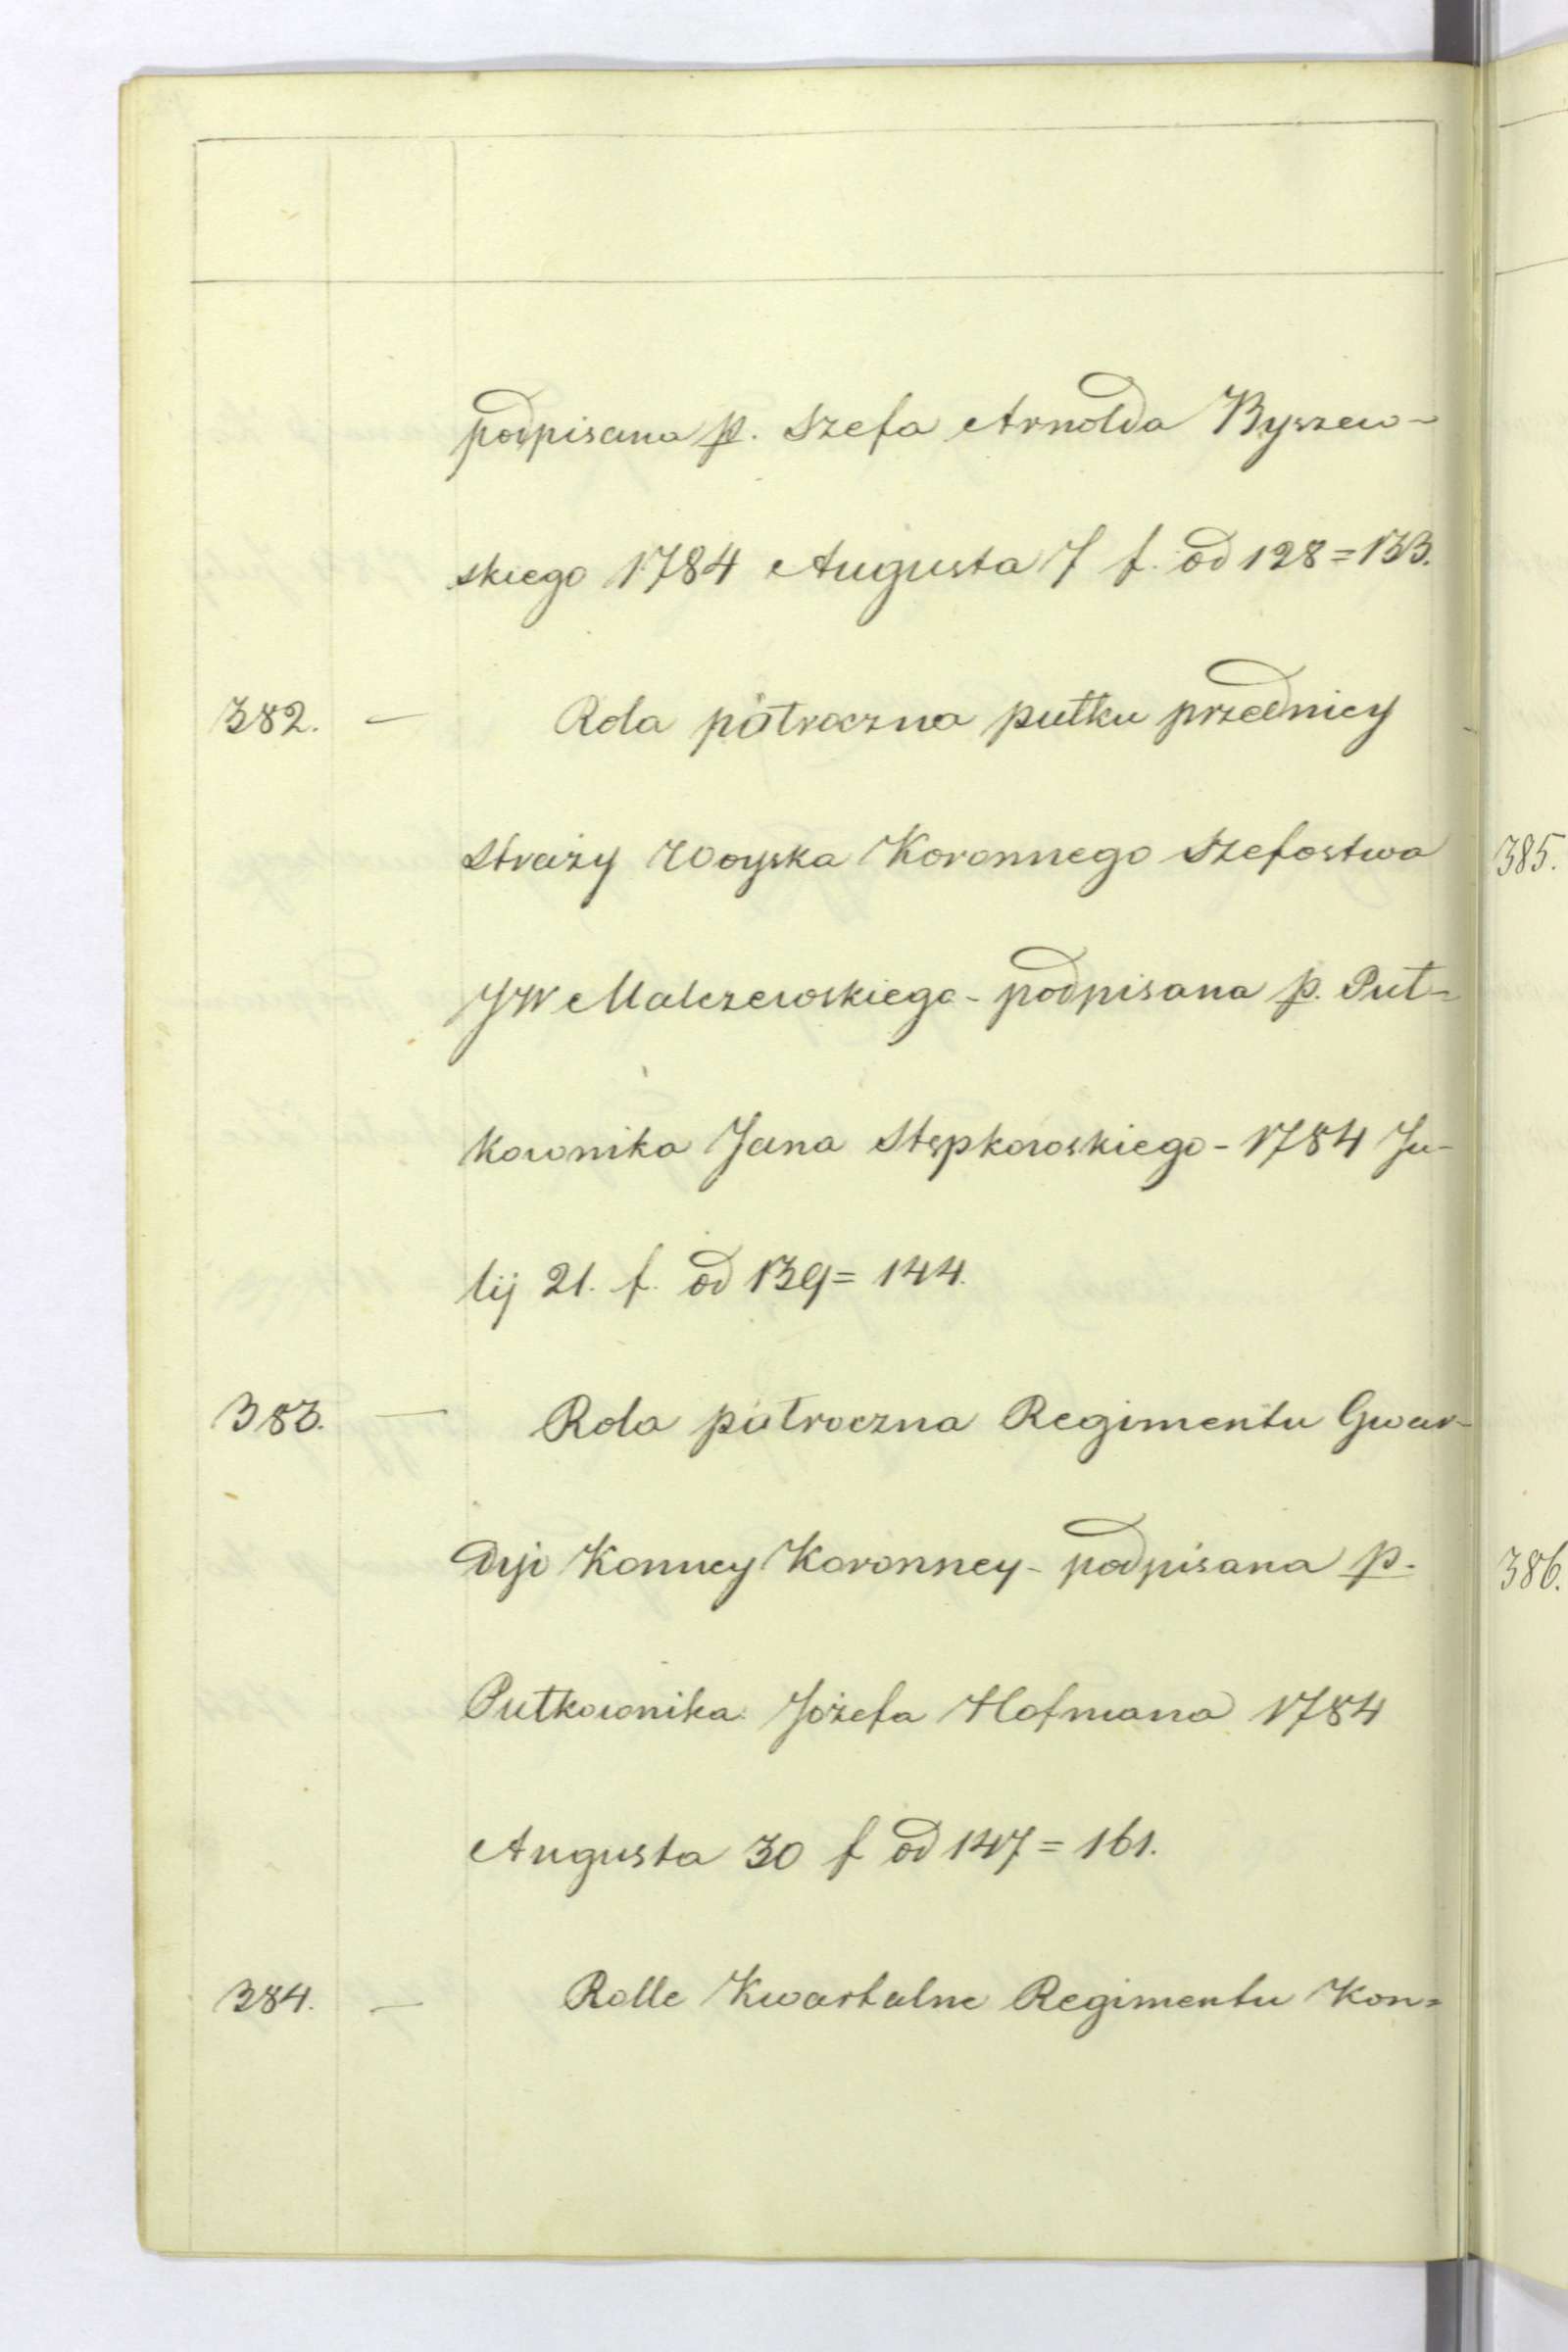 podpisana p. Szefa Arnolda Byszew-
skiego 1784 Augusta 7 f. od 128=133.
382. — Rola półroczna pułku przedniey
Straży Woyska Koronnego Szefostwa
JW Malczewskiego - podpisana p. Puł-
kownika Jana Stępkowskiego - 1784 Ju-
lij 21. f. od 139= 144.
383. — Rola półroczna Regimentu Gwar-
dyi Konney Koronney - podpisana p.
Pułkownika Józefa Hofmana 1784
Augusta 30 f od 147= 161.
384. — Rolle Kwartalne Regimentu Kon=
385.
386.